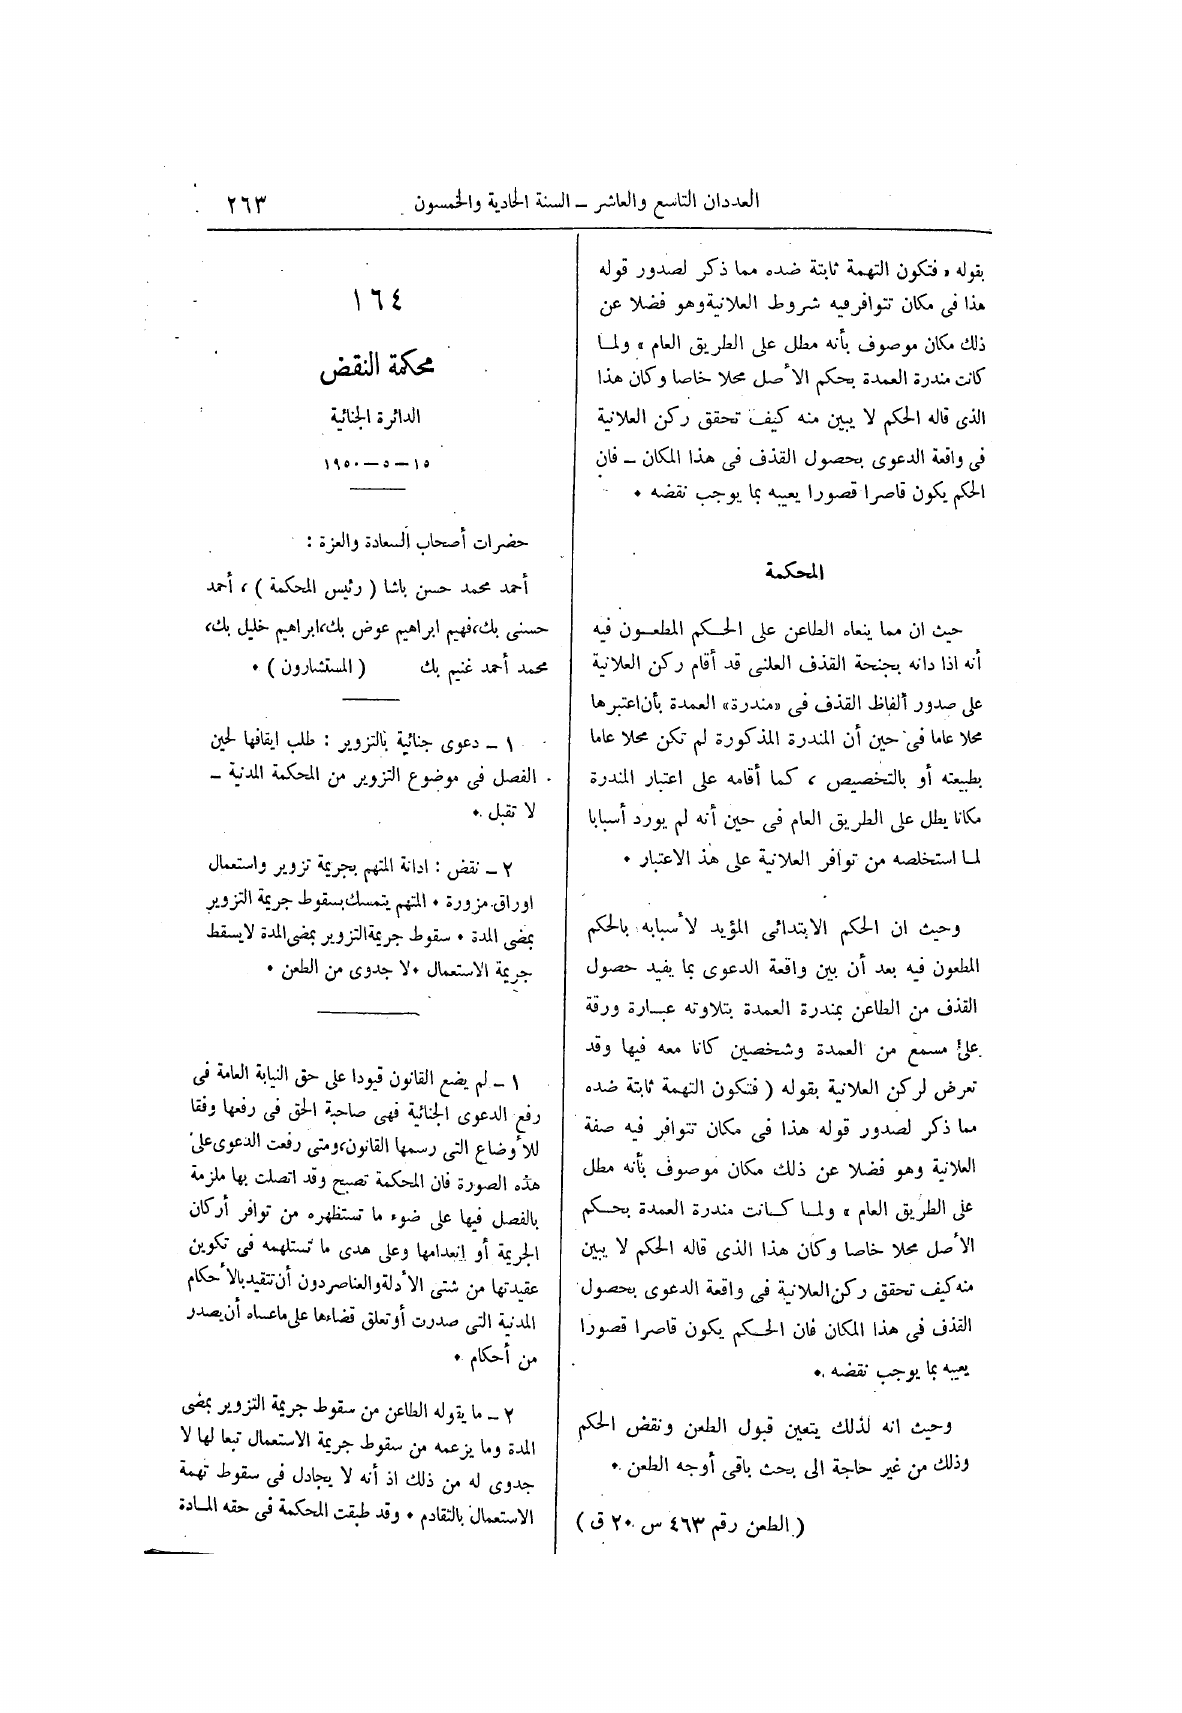 العددان التاسع والعاشر – السنة الحادية والخمسون
٢٦٣
بقوله « فتكون التهمة ثابتة ضده مما ذكر لصدور قوله
هذا فى مكان تتوافر فيه شروط العلانية وهو فضلا عن
ذلك مكان موصوف بأنه مطل على الطريق العام » ولما
كانت مندرة العمدة بحكم الأصل محلا خاصا وكان هذا
الذى قاله الحكم لا يبين منه كيف تحقق ركن العلانية
فى واقعة الدعوى بحصول القذف فى هذا المكان – فان
الحكم يكون قاصرا قصورا يعيبه بما يوجب نقضه .
المحكمة
حيث ان مما ينعاه الطاعن على الحكم المطعون فيه
أنه اذا دانه بجنحة القذف العلنى قد أقام ركن العلانية
على صدور ألفاظ القذف فى «مندرة» العمدة بأن اعتبرها
محلا عاما فى حين أن المندرة المذكورة لم تكن محلا عاما
بطبيعته أو بالتخصيص ، كما أقامه على اعتبار المندرة
مكانا يطل على الطريق العام فى حين أنه لم يورد أسبابا
لما استخلصه من توافر العلانية على هذ الاعتبار .
وحيث ان الحكم الابتدائى المؤيد لأسبابه بالحكم
المطعون فيه بعد أن بين واقعة الدعوى بما يفيد حصول
القذف من الطاعن بمندرة العمدة بتلاوته عبارة ورقة
على مسمع من العمدة وشخصين كانا معه فيها وقد
تعرض لركن العلانية بقوله ( فتكون التهمة ثابتة ضده
مما ذكر لصدور قوله هذا فى مكان تتوافر فيه صفة
العلانية وهو فضلا عن ذلك مكان موصوف بأنه مطل
على الطريق العام » ولما كانت مندرة العمدة بحكم
الأصل محلا خاصا وكان هذا الذى قاله الحكم لا يبين
منه كيف تحقق ركن العلانية فى واقعة الدعوى بحصول
القذف فى هذا المكان فان الحكم يكون قاصرا قصورا
يعيبه بما يوجب نقضه .
وحيث انه لذلك يتعين قبول الطعن ونقض الحكم
وذلك من غير حاجة الى بحث باقى أوجه الطعن .
( الطعن رقم ٤٦٣ س ٢٠ ق )
١٦٤
محكمة النقض
الدائرة الجنائية
١٥ – ٥ – ١٩٥٠
حضرات أصحاب السعادة والعزة :
أحمد محمد حسن باشا ( رئيس المحكمة ) ، أحمد
حسنى بك، فهيم ابراهيم عوض بك، ابراهيم خليل بك،
محمد أحمد غنيم بك ( المستشارون ) .
١ – دعوى جنائية بالتزوير : طلب ايقافها لحين
الفصل فى موضوع التزوير من المحكمة المدنية –
لا تقبل .
٢ – نقض : ادانة المتهم بجريمة تزوير واستعمال
اوراق مزورة . المتهم يتمسك بسقوط جريمة التزوير
بمضى المدة . سقوط جريمة التزوير بمضى المدة لا يسقط
جريمة الاستعمال . لا جدوى من الطعن .
١ – لم يضع القانون قيودا على حق النيابة العامة فى
رفع الدعوى الجنائية فهى صاحبة الحق فى رفعها وفقا
للأوضاع التى رسمها القانون، ومتى رفعت الدعوى على
هذه الصورة فان المحكمة تصبح وقد اتصلت بها ملزمة
بالفصل فيها على ضوء ما تستظهره من توافر أركان
الجريمة أو انعدامها وعلى هدى ما تستلهمه فى تكوين
عقيدتها من شتى الأدلة والعناصر دون أن تتقيد بالأحكام
المدنية التى صدرت أو تعلق قضاءها على ما عساه أن يصدر
من أحكام .
٢ – ما يقوله الطاعن من سقوط جريمة التزوير بمضى
المدة وما يزعمه من سقوط جريمة الاستعمال تبعا لها لا
جدوى له من ذلك اذ أنه لا يجادل فى سقوط تهمة
الاستعمال بالتقادم . وقد طبقت المحكمة فى حقه المادة